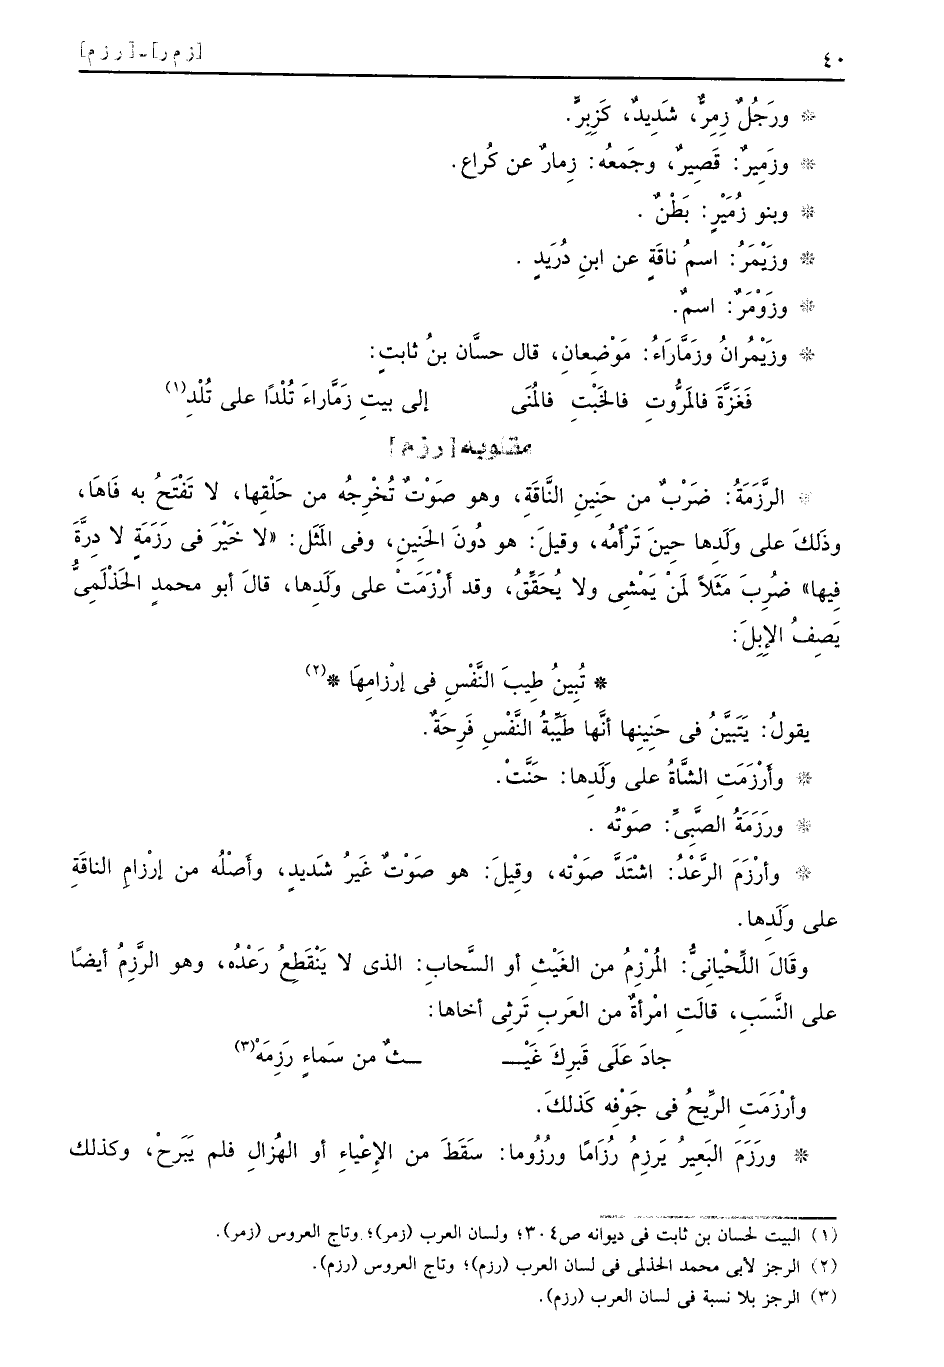 ٤٠ [ز م ر] ـ [ر ز م]
* ورَجُلٌ زِمِرٌّ، شَدِيدٌ، كَزِبِرٍّ.
* وزَمِيرٌ: قَصِيرٌ، وجَمعُه: زِمارٌ عن كُراع.
* وبنو زُمَيْرٍ: بَطْنٌ.
* وزَيْمَرُ: اسمُ ناقَةٍ عن ابنِ دُرَيدٍ.
* وزَوْمَرٌ: اسمٌ.
* وزَيْمُرانُ وزَمَّاراءُ: مَوْضِعانِ، قال حسَّان بنُ ثابتٍ:
فَغَزَّةَ فالَمرُّوتِ فالخَبْتِ فالمُنَى إلى بيتِ زَمَّاراءَ تُلْدًا على تُلْدِ(١)
مقلوبه [ر ز م]
* الرَّزَمَةُ: ضَرْبٌ من حَنِينِ النَّاقَةِ، وهو صَوْتٌ تُخْرِجُه من حَلْقِها، لا تَفْتَحُ به فَاهَا،
وذَلكَ على ولَدها حينَ تَرْأَمُه، وقيلَ: هو دُونَ الحَنِينِ، وفى المَثَل: «لا خَيْرَ فى رَزَمَةٍ لا دِرَّةَ
فِيها» ضُرِبَ مَثَلاً لَمنْ يَمْشِى ولا يُحَقِّقُ، وقد أَرْزَمَتْ على ولَدِها، قالَ أبو محمدٍ الحَذْلَمِىُّ
يَصِفُ الإبِلَ:
* تُبِينُ طِيبَ النَّفْسِ فى إرْزامِهَا *(٢)
يقولُ: يَتَبَيَّنُ فى حَنِينِها أنَّها طَيِّبَةُ النَّفْسِ فَرِحَةٌ.
* وأَرْزَمَتِ الشَّاةُ على ولَدِها: حَنَّتْ.
* ورَزَمَةُ الصَّبِىِّ: صَوْتُه.
* وأرْزَمَ الرَّعْدُ: اشْتَدَّ صَوْته، وقيلَ: هو صَوْتٌ غَيرُ شَديدٍ، وأَصْلُه من إرْزامِ الناقَةِ
على ولَدِها.
وقَالَ اللِّحْيانِىُّ: المُرْزِمُ من الغَيْثِ أو السَّحابِ: الذى لا يَنْقَطِعُ رَعْدُه، وهو الرَّزِمُ أيضًا
على النَّسَبِ، قالَتِ امْرأةٌ من العَربِ تَرثِى أخاها:
جادَ عَلَى قَبرِكَ غَيْـ ـثٌ من سَماءٍ رَزِمَهْ(٣)
وأرْزَمَتِ الرِّيحُ فى جَوْفِه كَذلكَ.
* ورَزَمَ البَعِيرُ يَرزِمُ رُزَامًا ورُزُوما: سَقَطَ من الإعْياءِ أو الهُزالِ فلم يَبَرحْ، وكذلك
(١) البيت لحسان بن ثابت فى ديوانه ص٣٠٤؛ ولسان العرب (زمر)؛ وتاج العروس (زمر).
(٢) الرجز لأبى محمد الحذلمى فى لسان العرب (رزم)؛ وتاج العروس (رزم).
(٣) الرجز بلا نسبة فى لسان العرب (رزم).